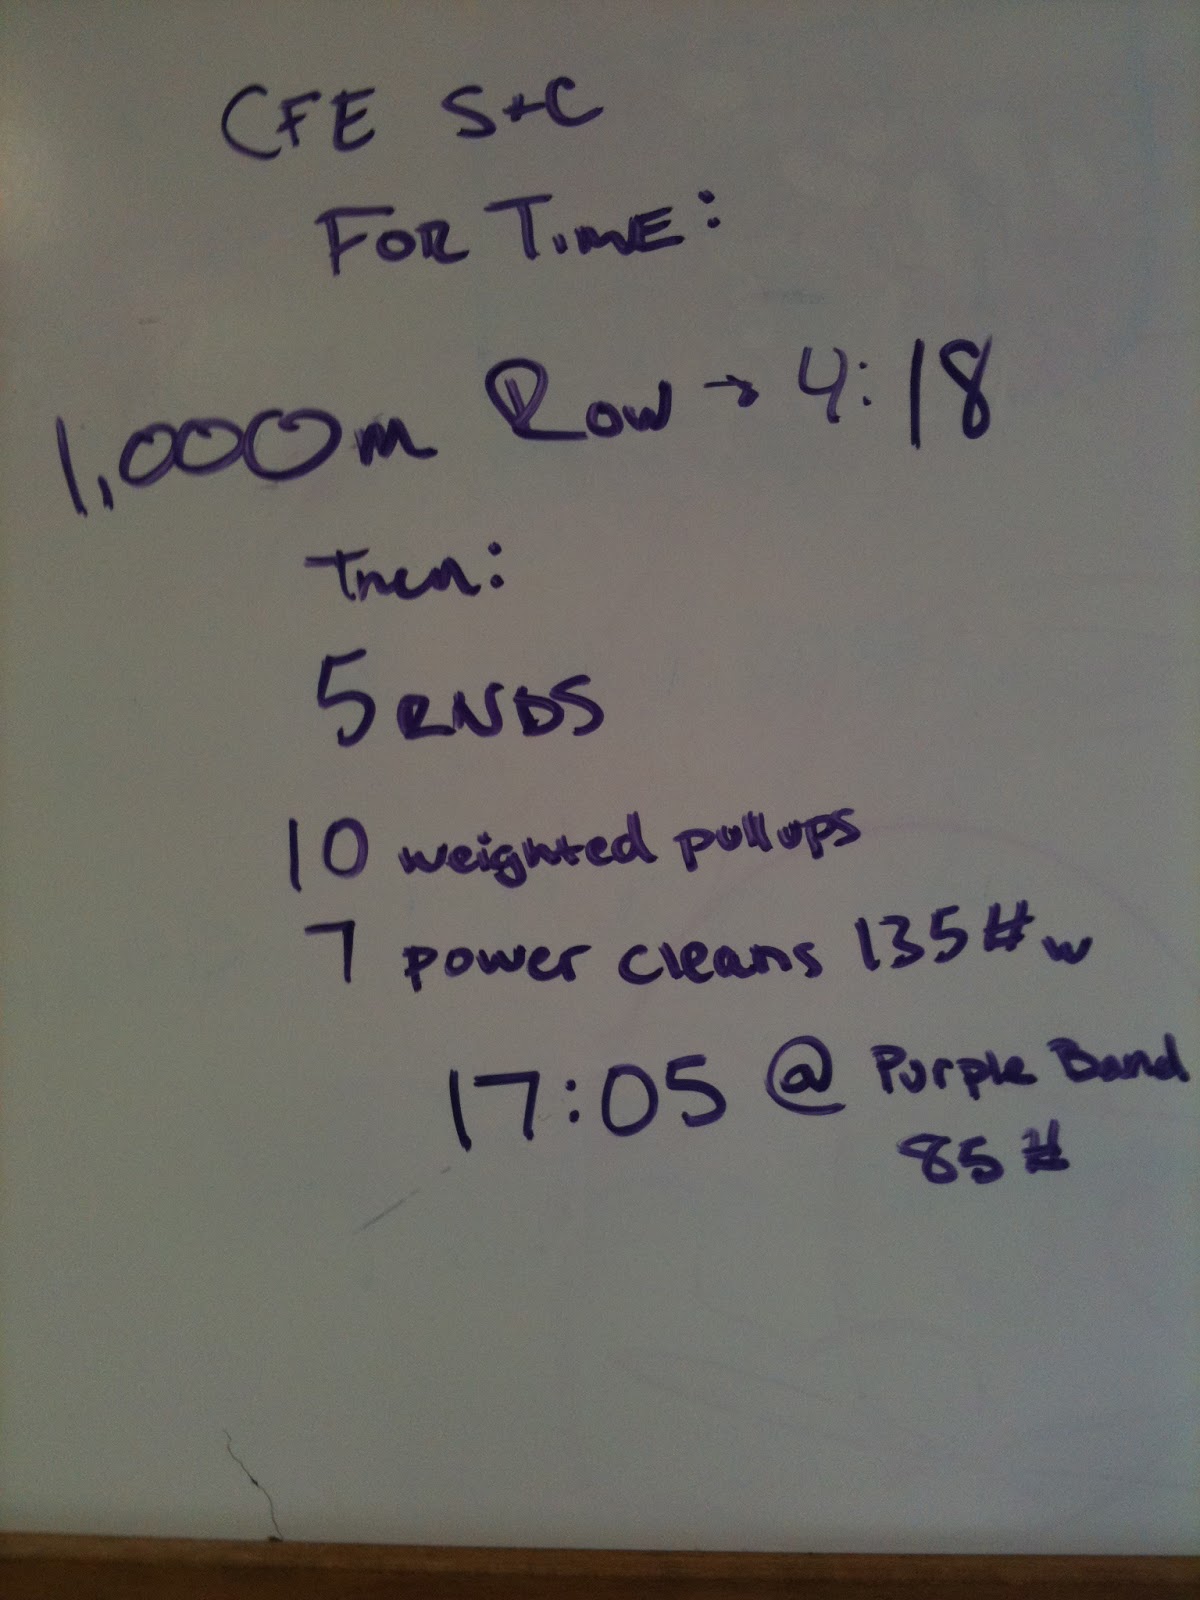 CFE S+C
FOR TIME:
1,000m Row → 4:18
Then:
5 RNDS
10 weighted pullups
7 power cleans 135# w
17:05 @ Purple Band
85#